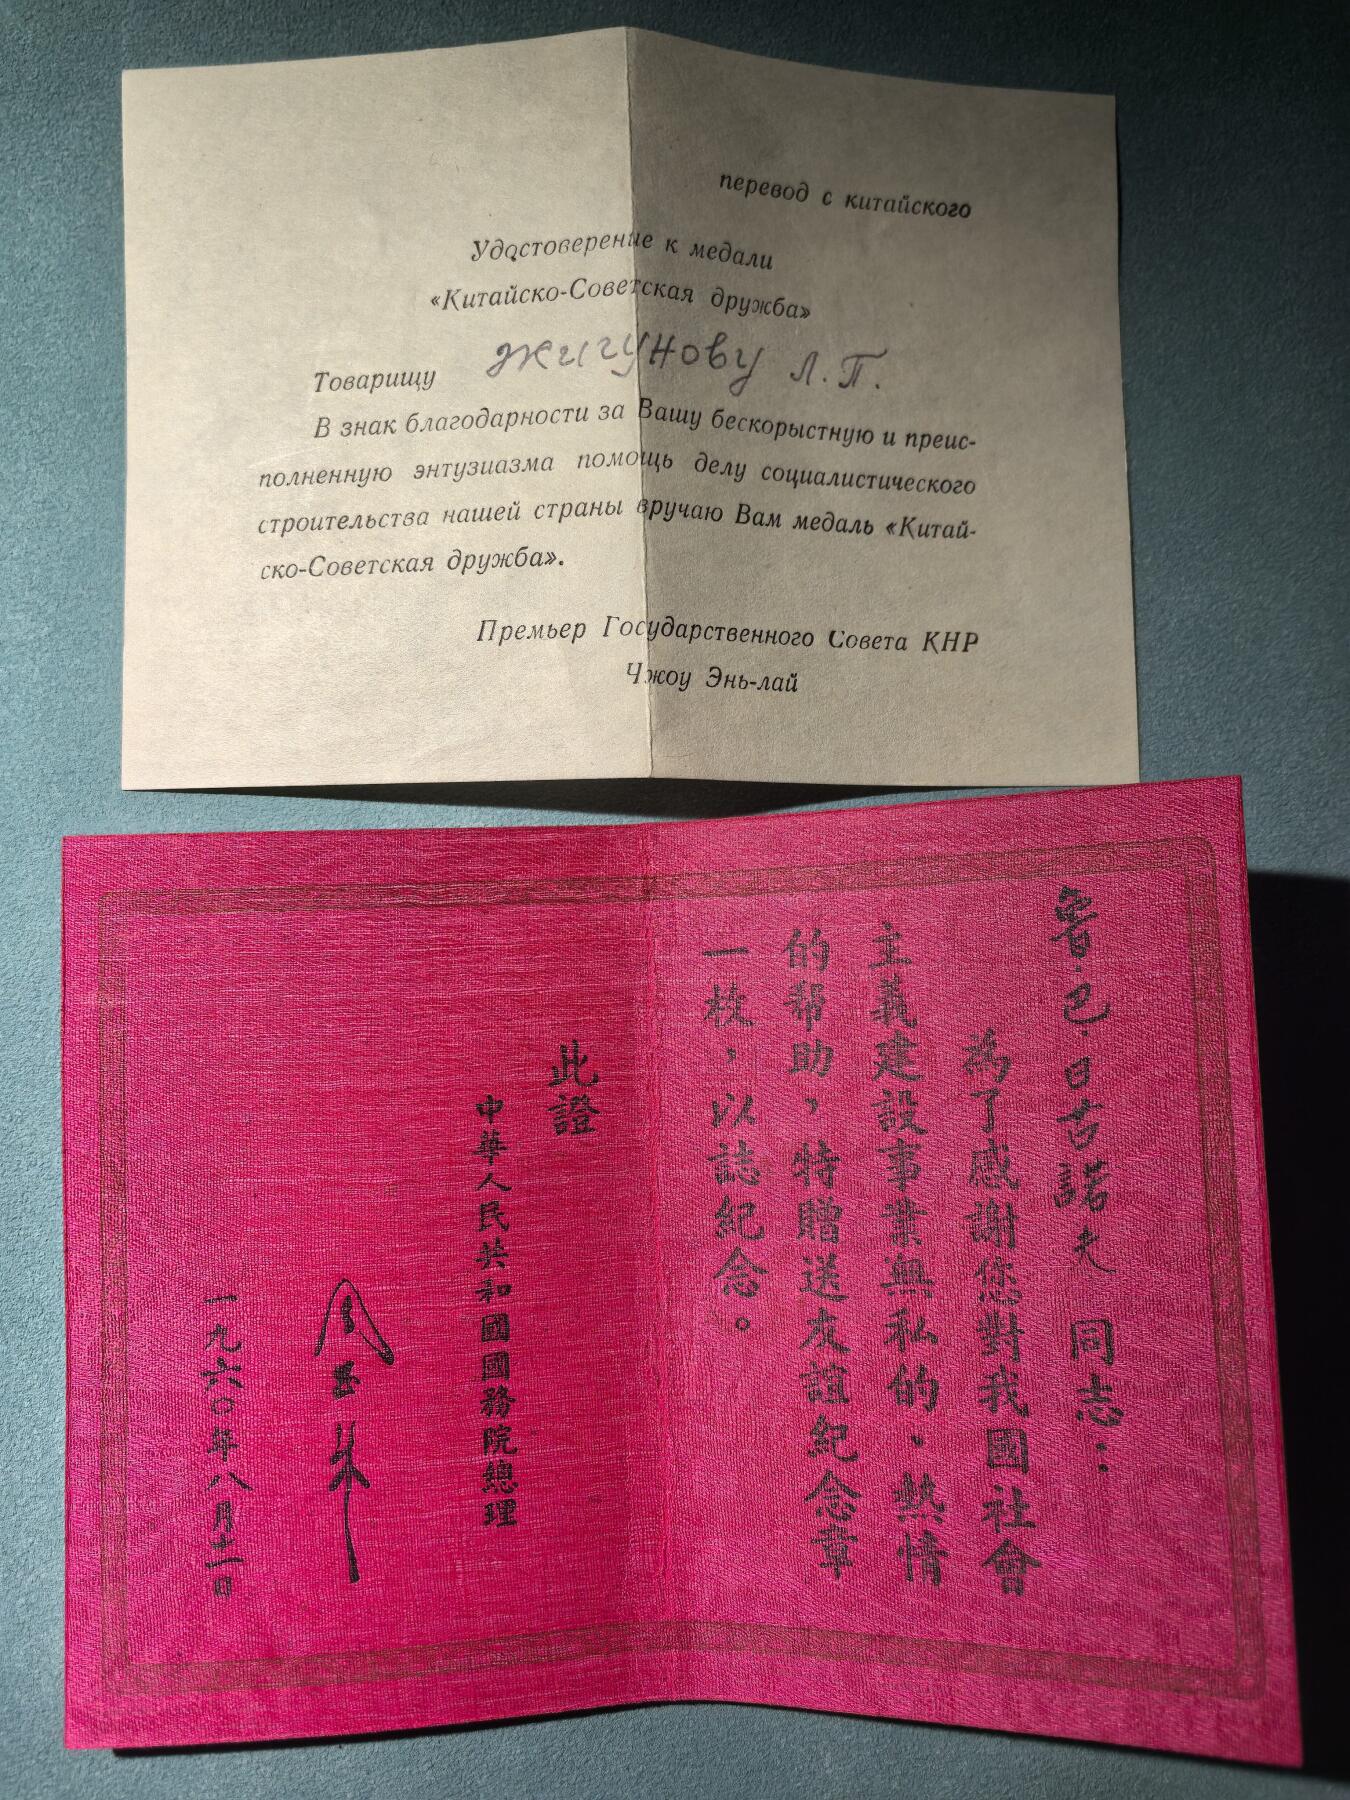 перевод с китайского
Удостоверение к медали
«Китайско-Советская дружба»
Товарищу Жигунову Л.П.
В знак благодарности за Вашу бескорыстную и преис-
полненную энтузиазма помощь делу социалистического
строительства нашей страны вручаю Вам медаль «Китай-
ско-Советская дружба».
Премьер Государственного Совета КНР
Чжоу Энь-лай
魯·巴·日古諾夫 同志：
為了感謝您對我國社會
主義建設事業無私的、熱情
的帮助，特贈送友誼紀念章
一枚，以誌紀念。
此證
中華人民共和國國務院總理
周恩来
一九六〇年八月十一日